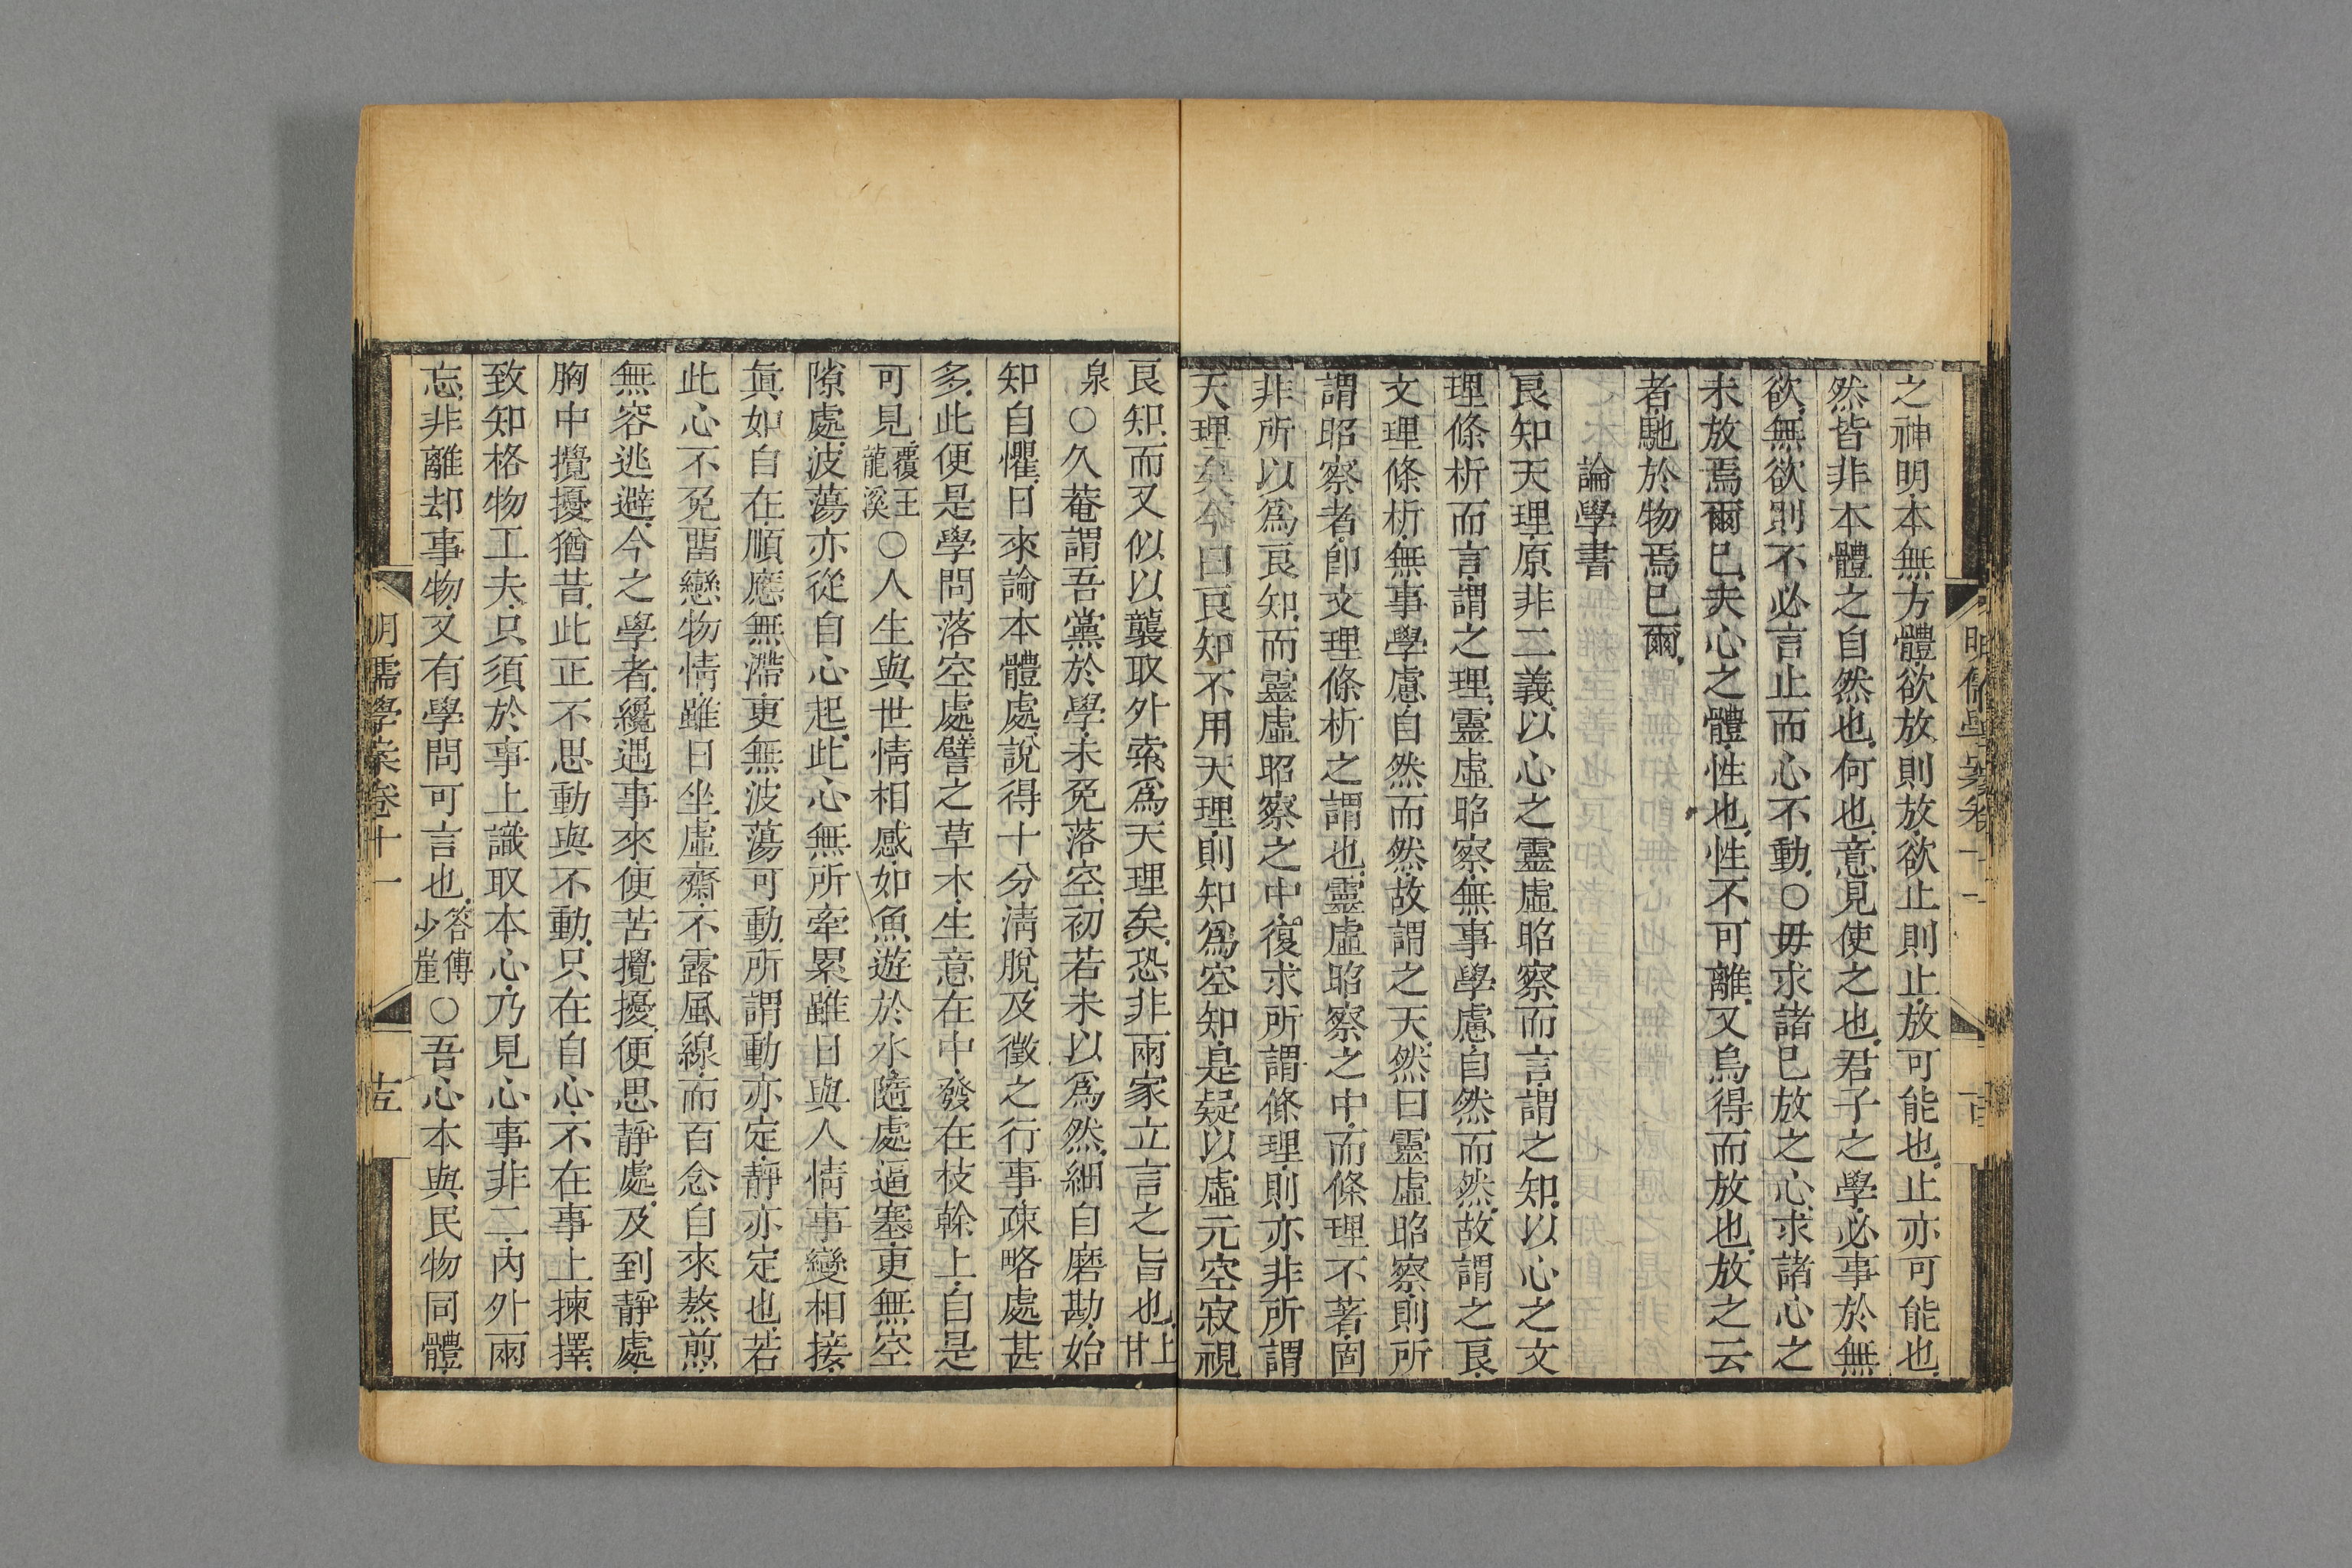 之神明本無方體欲放則放欲止則止放可能也止亦可能也
然皆非本體之自然也何也意見使之也君子之學必事於無
欲無欲則不必言止而心不動○毋求諸已放之心求諸心之
未放焉爾已夫心之體性也性不可離又烏得而放也放之云
者馳於物焉已爾
論學書
良知天理原非二義以心之靈虛昭察而言謂之知以心之文
理條析而言謂之理靈虛昭察無事學慮自然而然故謂之良
文理條析無事學慮自然而然故謂之天然曰靈虛昭察則所
謂昭察者卽文理條析之謂也靈虛昭察之中而條理不著固
非所以爲良知而靈虛昭察之中復求所謂條理則亦非所謂
天理矣今曰良知不用天理則知爲空知是疑以虛元空寂視
良知而又似以襲取外索爲天理矣恐非兩家立言之旨也上甘
泉○久菴謂吾黨於學未免落空初若未以爲然細自磨勘始
知自懼日來論本體處說得十分淸脫及徵之行事疎略處甚
多此便是學問落空處譬之草木生意在中發在枝幹上自是
可見覆王龍溪○人生與世情相感如魚遊於水隨處逼塞更無空
隙處波蕩亦從自心起此心無所牽累雖日與人情事變相接
眞如自在順應無滯更無波蕩可動所謂動亦定靜亦定也若
此心不免畱戀物情雖日坐虛齋不露風線而百念自來熬煎
無容逃避今之學者纔遇事來便苦攪擾便思靜處及到靜處
胸中攪擾猶昔此正不思動與不動只在自心不在事上揀擇
致知格物工夫只須於事上識取本心乃見心事非二內外兩
忘非離却事物又有學問可言也答傅少崖○吾心本與民物同體
明儒學案卷十一